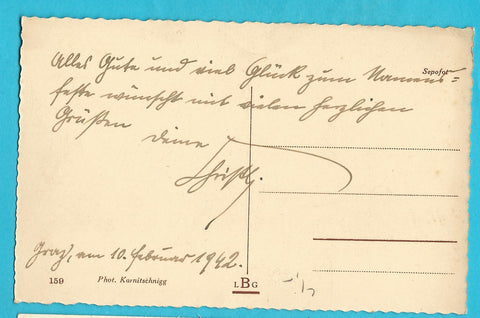 Alles Gute und viel Glück zum Namens=
feste wünscht mit vielen herzlichen
Grüßen
Deine
Christl.
Graz, am 10. Februar 1942.
Sepofot
159
Phot. Karnitschnigg
LBG